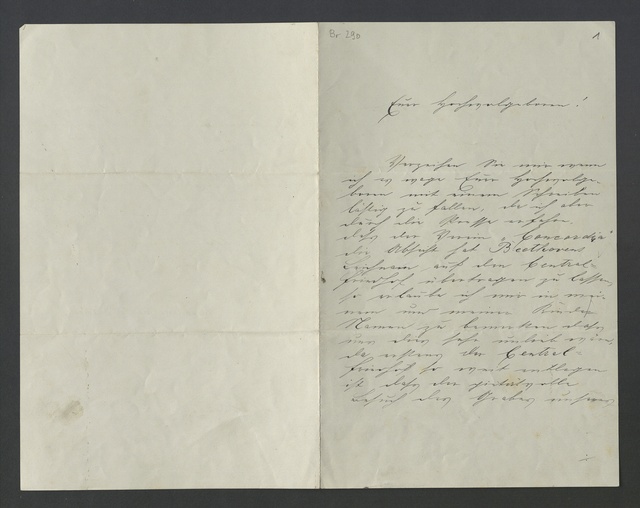 Br. 290
1
Euer Hochwolgeboren!
Verzeihen Sie mir wenn
ich es wage Euer Hochwolge-
boren mit einem Schreiben
lästig zu fallen, da ich aber
durch die Presse erfahre
daß der Verein „Concordia“
die Absicht hat Beethovens
Leichnam auf den Central-
friedhof übertragen zu lassen,
so erlaube ich mir in mei-
nem und meiner Kinder
Namen zu bemerken daß
uns dies sehr unlieb wäre,
da erstens der Central-
friedhof so weit entlegen
ist daß der pietätvolle
Besuch des Grabes unseres